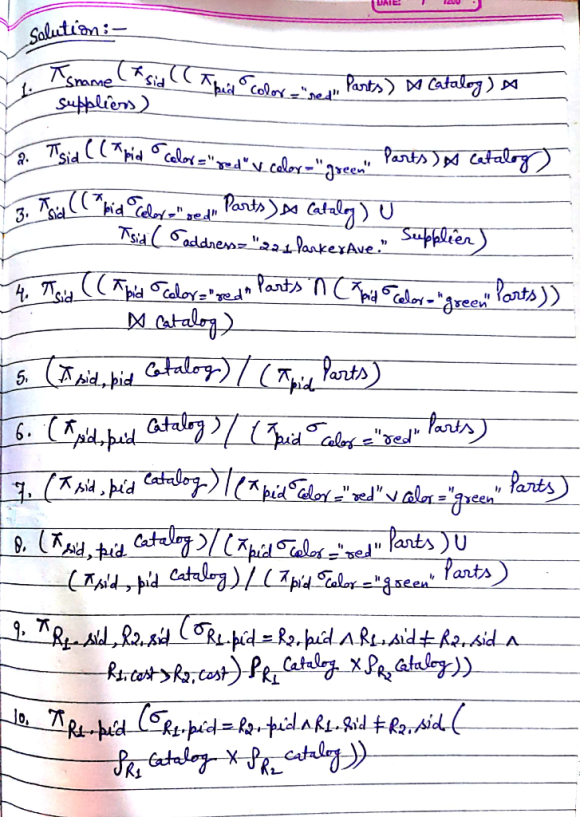 DATE: / /200
Solution :-
1. π sname (π sid ((π pid σ color="red" Parts) ⋈ Catalog) ⋈
Suppliers)
2. π sid ((π pid σ color="red" ∨ color="green" Parts) ⋈ Catalog)
3. π sid ((π pid σ color="red" Parts) ⋈ Catalog) ∪
π sid (σ address="221 ParkerAve." Supplier)
4. π sid ((π pid σ color="red" Parts ∩ (π pid σ color="green" Parts))
⋈ Catalog)
5. (π sid, pid Catalog) / (π pid Parts)
6. (π sid, pid Catalog) / (π pid σ color="red" Parts)
7. (π sid, pid Catalog) / (π pid σ color="red" ∨ color="green" Parts)
8. (π sid, pid Catalog) / (π pid σ color="red" Parts) ∪
(π sid, pid Catalog) / (π pid σ color="green" Parts)
9. π R1.sid, R2.sid (σ R1.pid = R2.pid ∧ R1.sid ≠ R2.sid ∧
R1.cost > R2.cost) ρ R1 Catalog × ρ R2 Catalog))
10. π R1.pid (σ R1.pid = R2.pid ∧ R1.sid ≠ R2.sid (
ρ R1 Catalog × ρ R2 catalog))